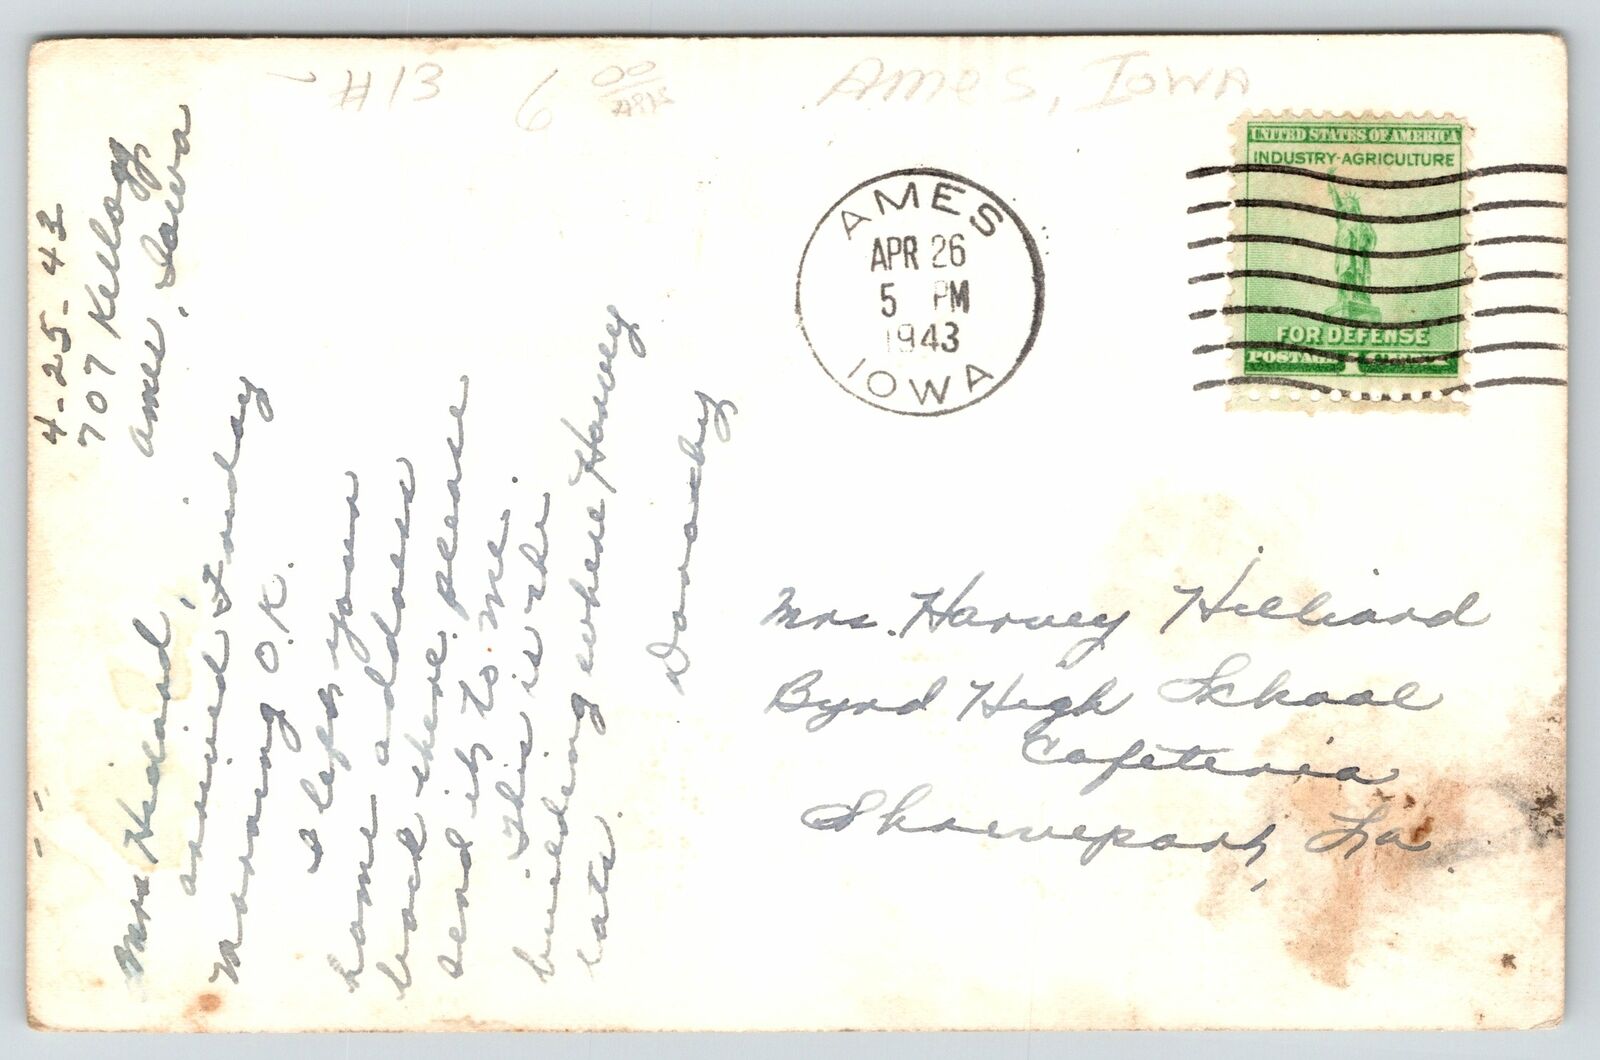 #13 6 00
Ames, Iowa
4-25-43
707 Kellogg
Ame, Iowa
Mrs Hidard,
arrived Friday
morning O.K.
I left your
home address
back there please
send it to me.
This is the
building where Harvey
eats.
AMES
APR 26
5 PM
1943
IOWA
UNITED STATES OF AMERICA
INDUSTRY-AGRICULTURE
FOR DEFENSE
POSTAGE 1 CENT
Mrs. Harvey Hilliard
Byrd High School
Cafeteria
Shreveport, La.